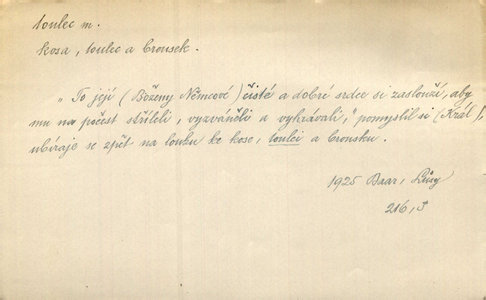 toulec m.
kosa, toulec a brousek.
„To její (Boženy Němcové) čisté a dobré srdce si zaslouží, aby
mu na počest stříleli, vyzváněli a vyhrávali," pomyslil si (Král),
ubíraje se zpět na louku ke kose, toulci a brousku.
1925 Baar, Lůsy
216, 3